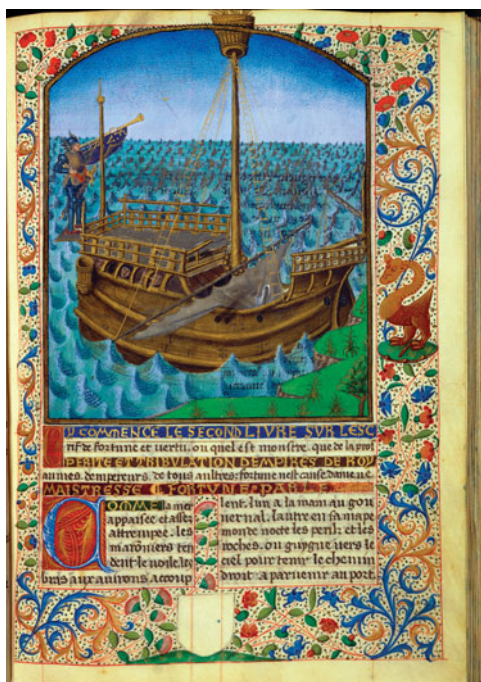 CY COMMENCE LE SECOND LIVRE SUR LESC
trif de fortune et vertu, ou quel est monstre, que de la pros
PERITE ET TRIBULATION DEMPIRES DE ROY
aumes, dempereurs, de tous aultres: fortune nest cause, dame, ne
MAISTRESSE
COMME la mer
appaisee et assez
attrempee, les
maronniers ten
dent le voile, les
bras aux avirons, acoup
lent, lun a la main au gou
vernal, lautre en sa mape
monde note les perilz et les
roches, ou guigne vers le
ciel pour tenir le chemin
droit a parvenir au port.